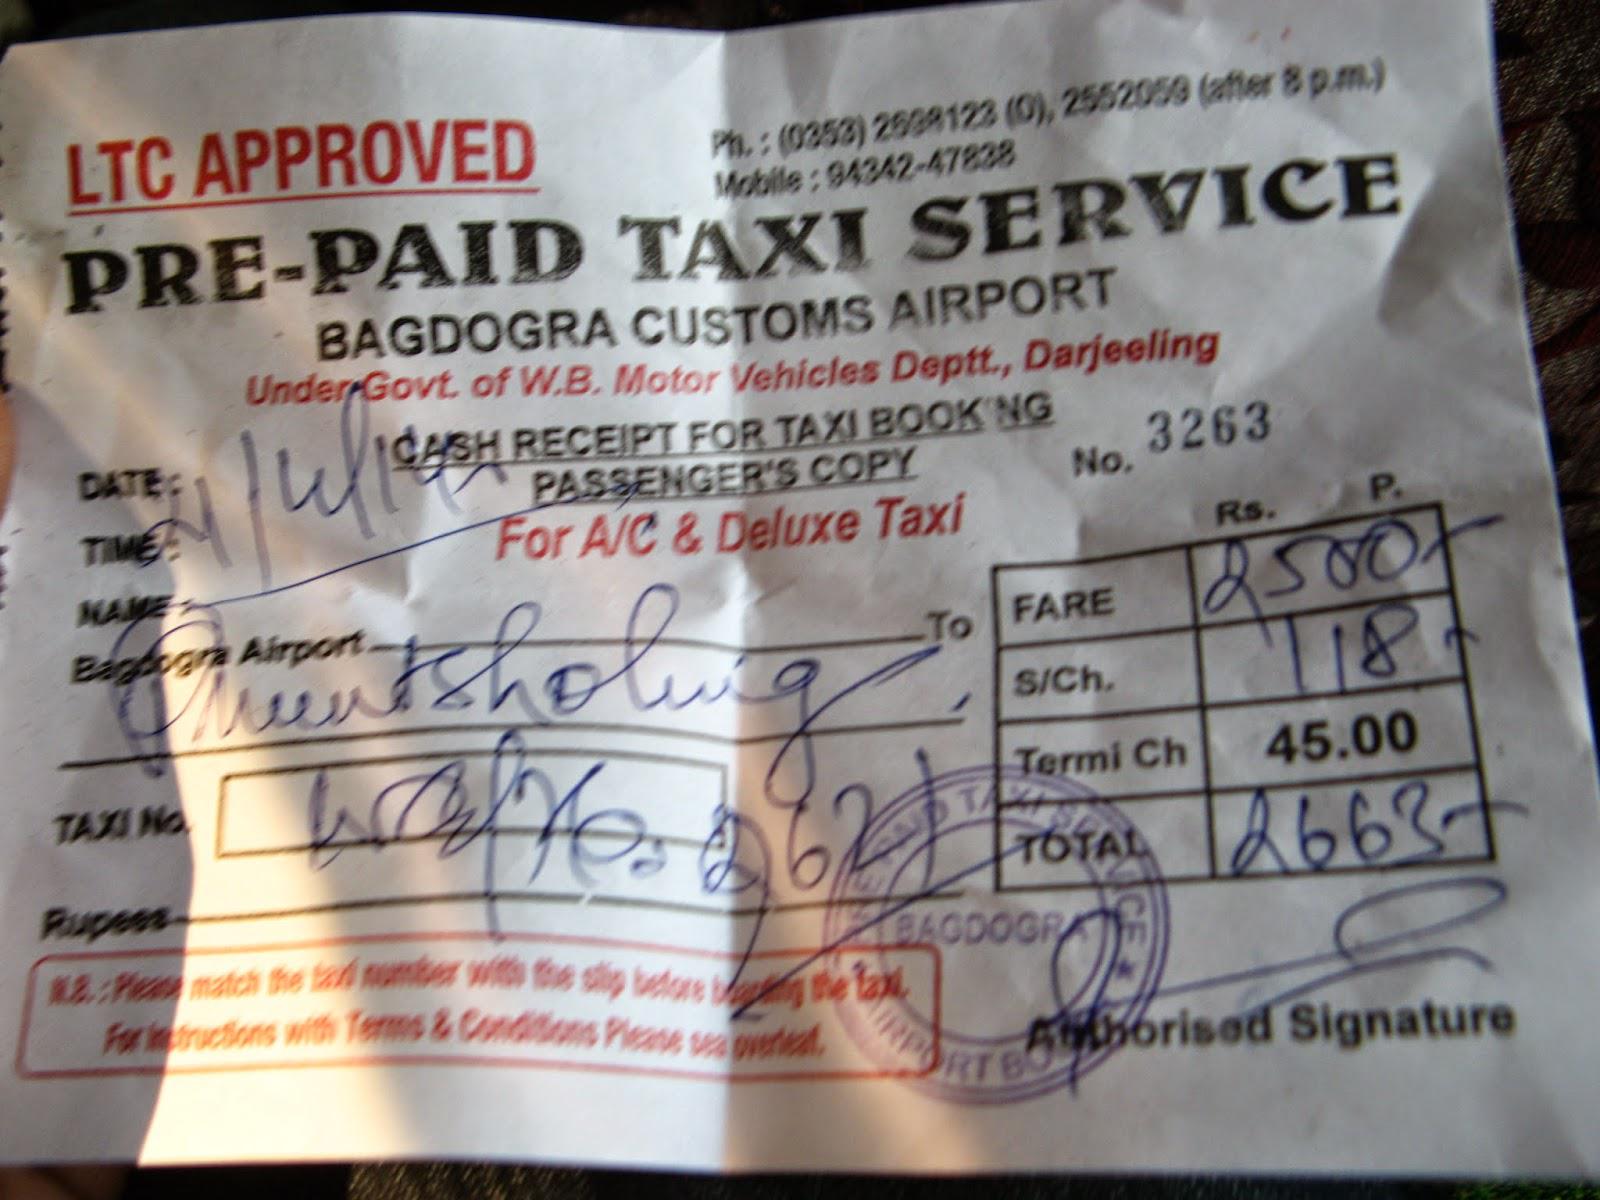 LTC APPROVED
Ph. : (0353) 2698123 (O), 2552059 (after 8 p.m.)
Mobile : 94342-47838
PRE-PAID TAXI SERVICE
BAGDOGRA CUSTOMS AIRPORT
Under Govt. of W.B. Motor Vehicles Deptt., Darjeeling
CASH RECEIPT FOR TAXI BOOKING
PASSENGER'S COPY
No. 3263
For A/C & Deluxe Taxi
DATE :
TIME :
NAME :
Bagdogra Airport To
Phuentsholing
TAXI No.
Rupees
Rs. P.
FARE 2500/-
S/Ch. 118/-
Termi Ch 45.00
TOTAL 2663/-
BAGDOGRA
N.B. : Please match the taxi number with the slip before boarding the taxi.
For instructions with Terms & Conditions Please see overleaf.
Authorised Signature